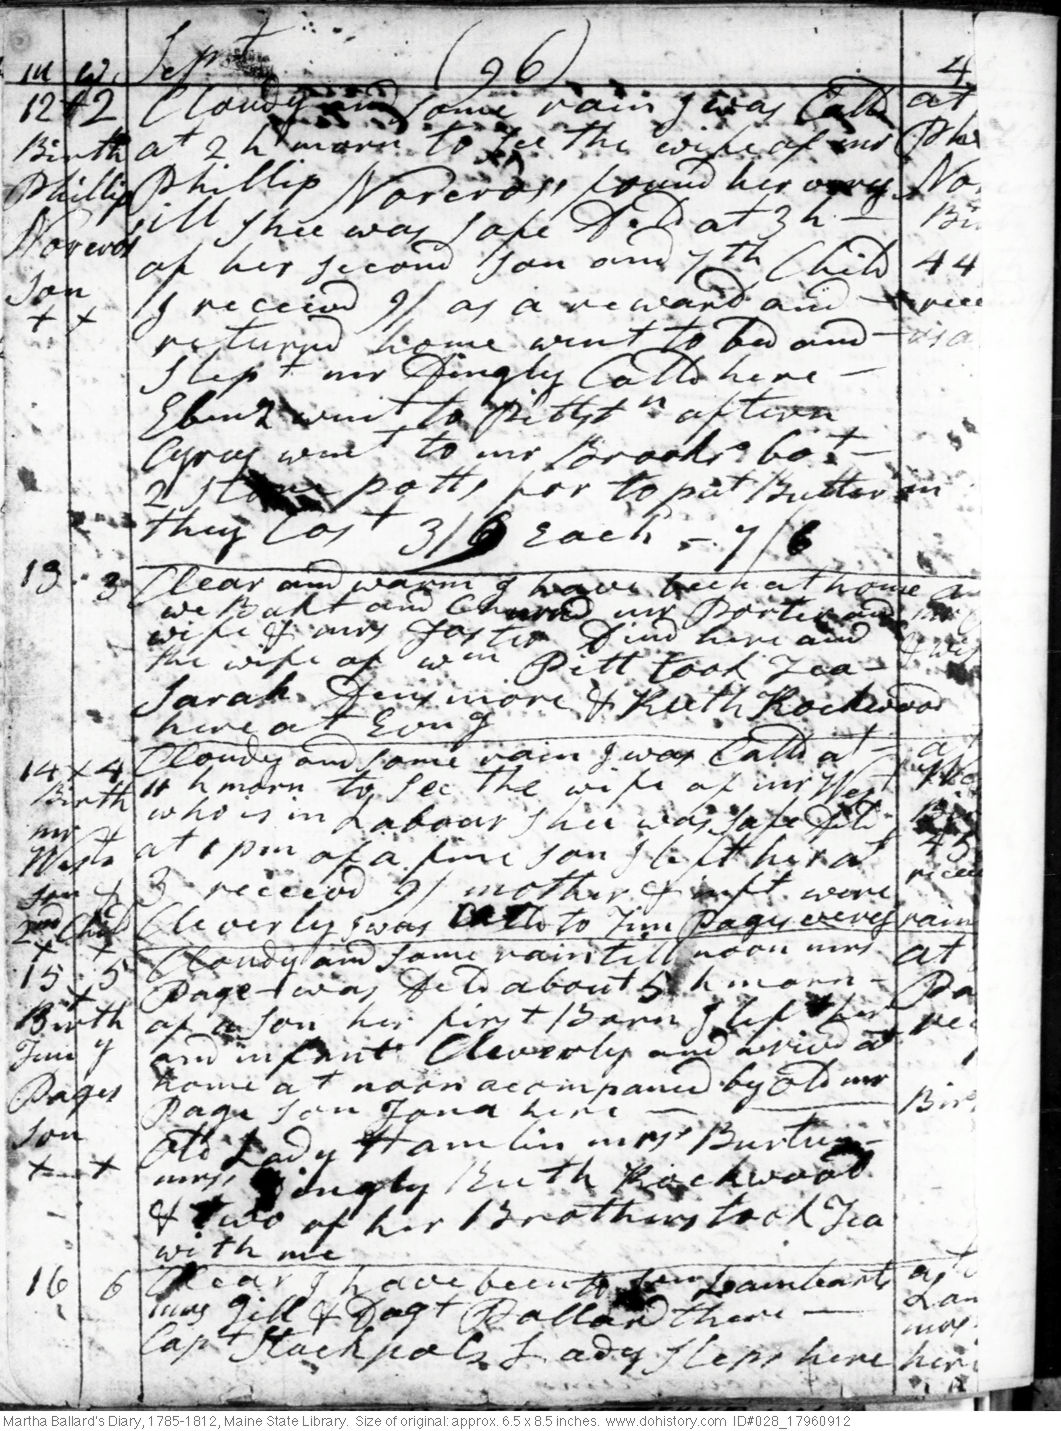 m w. Sept (96) 4
12 2 Cloudy and some rain I was Calld at
Birth at 2 h morn to See the wife of mr
Phillip Phillip Norcross found her very
Norcros ill Shee was safe Deld at 3 h —
Son of her second Son and 7th Child 44
+ + I receivd 9/ as a reward and —
returnd home went to bed and —
Slept mr Dingly Calld here —
Ebenz went to Pittstn aftern
Cyrus went to mr Brooks bot —
2 Stone potts for to put Butter in
they Cost 3/6 Each — 7/6
13 3 Clear and warm I have been at home
we Bakt and Churnd mr Porter and
wife & mrs Foster Dind here and
the wife of wm Pitt took Tea —
Sarah Densmore & Ruth Rockwood
here at Evng
14 x 4 Cloudy and some rain I was Calld at —
Birth 11 h morn to See the wife of mr West
mr who is in Labour Shee was safe Deld
Wests at 1 pm of a fine Son I left her at
son & 3 receivd 9/ mother & inft were
2nd Child Cleverly I was Calld to Jim Pages every rain
15 5 Cloudy and some rain till noon mrs at
Birth Page was Deld about 5 h morn —
of a Son her first Born I left her
Jimy and infant Cleverly and arivd at
Pages home at noon acompanied by old mr
Son Page Son Jona here —
+ + old Lady Hamlin mrs Burtun —
mrs Dingly Ruth Rockwood
& two of her Brothers took Tea
with me
16 6 Clear I have been to Lambarts
mrs Gill & Dagt Ballard there —
Capt Stackpols Lady Sleps here
Martha Ballard's Diary, 1785-1812, Maine State Library. Size of original: approx. 6.5 x 8.5 inches. www.dohistory.com ID#028_17960912